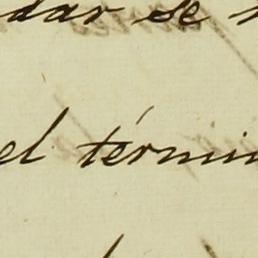 dar se
el términ